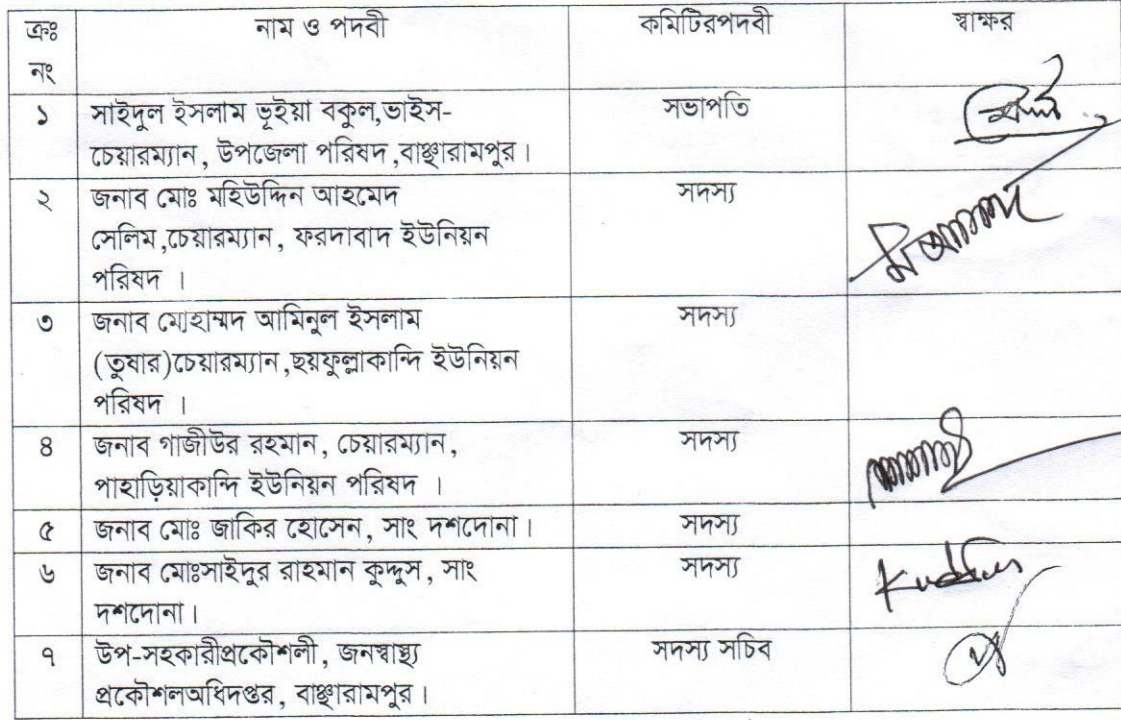 ক্রঃ নাম ও পদবী কমিটিরপদবী স্বাক্ষর
নং
১ সাইদুল ইসলাম ভূইয়া বকুল,ভাইস- সভাপতি
চেয়ারম্যান, উপজেলা পরিষদ ,বাঞ্ছারামপুর।
২ জনাব মোঃ মহিউদ্দিন আহমেদ সদস্য
সেলিম,চেয়ারম্যান, ফরদাবাদ ইউনিয়ন
পরিষদ ।
৩ জনাব মোহাম্মদ আমিনুল ইসলাম সদস্য
(তুষার)চেয়ারম্যান,ছয়ফুল্লাকান্দি ইউনিয়ন
পরিষদ ।
৪ জনাব গাজীউর রহমান, চেয়ারম্যান, সদস্য
পাহাড়িয়াকান্দি ইউনিয়ন পরিষদ ।
৫ জনাব মোঃ জাকির হোসেন, সাং দশদোনা। সদস্য
৬ জনাব মোঃসাইদুর রাহমান কুদ্দুস, সাং সদস্য Kuddus
দশদোনা।
৭ উপ-সহকারীপ্রকৌশলী, জনস্বাস্থ্য সদস্য সচিব
প্রকৌশলঅধিদপ্তর, বাঞ্ছারামপুর।